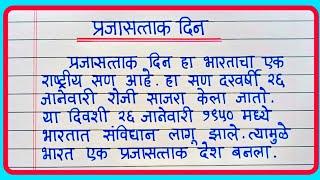 प्रजासत्ताक दिन
प्रजासत्ताक दिन हा भारताचा एक
राष्ट्रीय सण आहे. हा सण दरवर्षी २६
जानेवारी रोजी साजरा केला जातो.
या दिवशी २६ जानेवारी १९५० मध्ये
भारतात संविधान लागू झाले. त्यामुळे
भारत एक प्रजासत्ताक देश बनला.